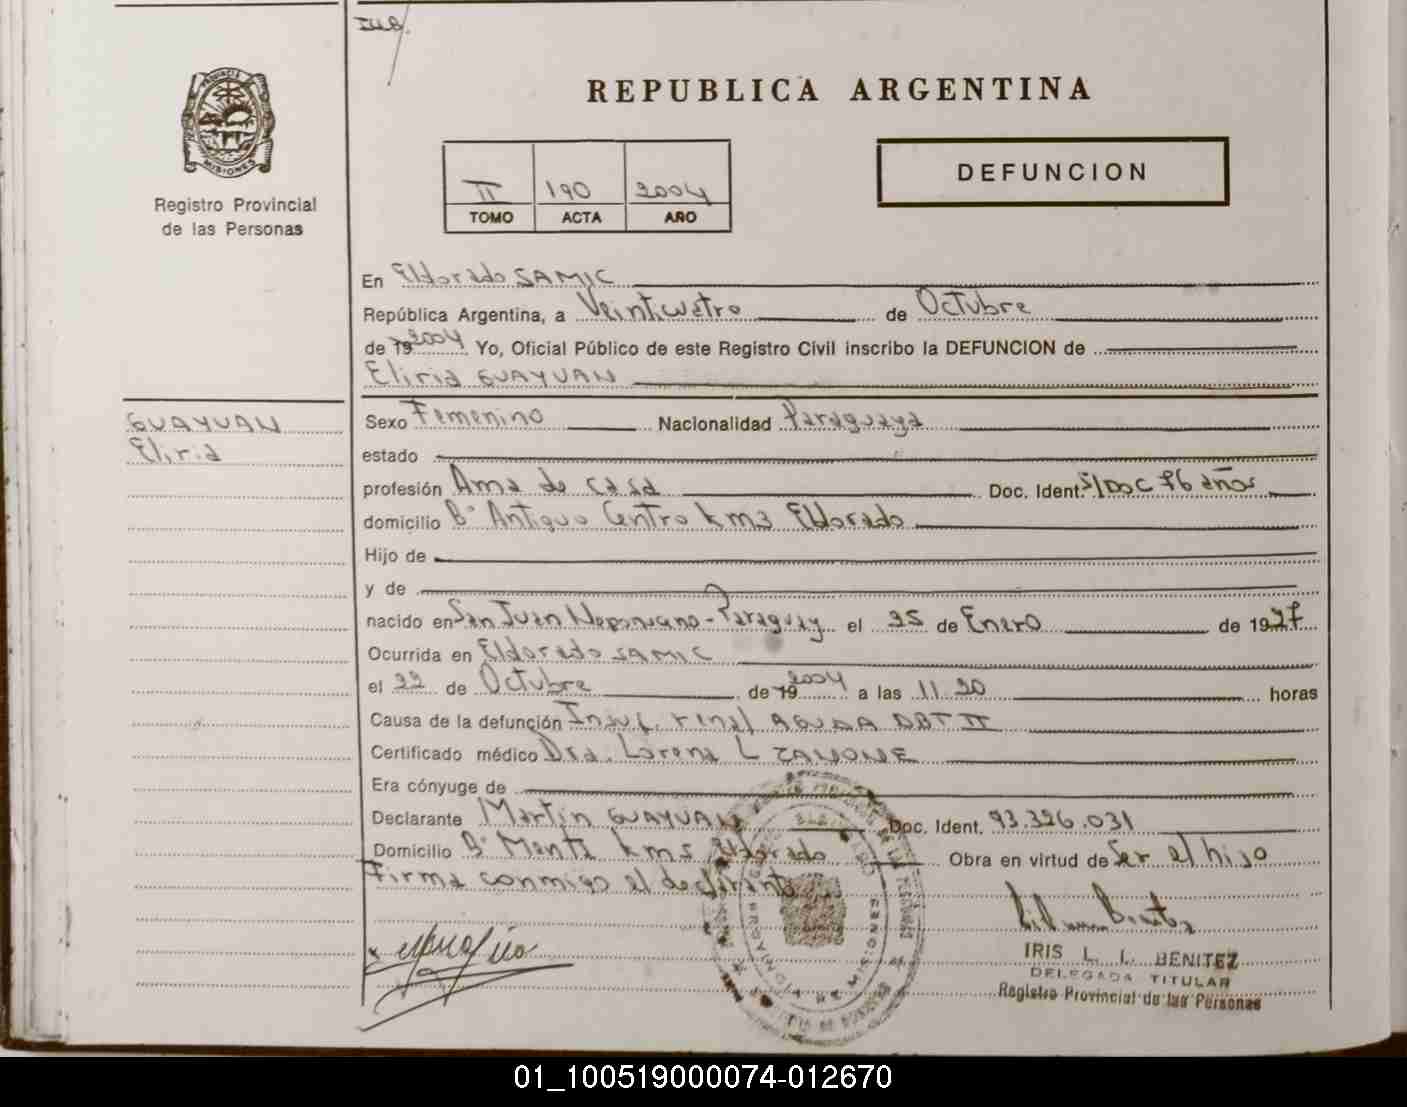 REPUBLICA ARGENTINA
PROVINCIA DE MISIONES
Registro Provincial
de las Personas
II 190 2004
TOMO ACTA AÑO
DEFUNCION
En Eldorado SAMIC
República Argentina, a Veinticuatro de Octubre
de 19 2004 Yo, Oficial Público de este Registro Civil inscribo la DEFUNCION de
Eliria GUAYUAN
GUAYUAN
Eliria
Sexo Femenino Nacionalidad Paraguaya
estado
profesión Ama de casa Doc. Ident. S/Doc 76 años
domicilio Bº Antiguo Centro km3 Eldorado
Hijo de
y de
nacido en San Juan Nepomuceno - Paraguay el 25 de Enero de 1927
Ocurrida en Eldorado SAMIC
el 22 de Octubre de 19 2004 a las 11.20 horas
Causa de la defunción Insuf. renal AGUDA DBT II
Certificado médico Dra. Lorena L ZANONE
Era cónyuge de
Declarante Martín GUAYUAN Doc. Ident. 93.326.031
Domicilio Bº Monte km5 Eldorado Obra en virtud de Ser el hijo
Firma conmigo el declarante
IRIS L. L. BENITEZ
DELEGADA TITULAR
Registro Provincial de las Personas
01_100519000074-012670